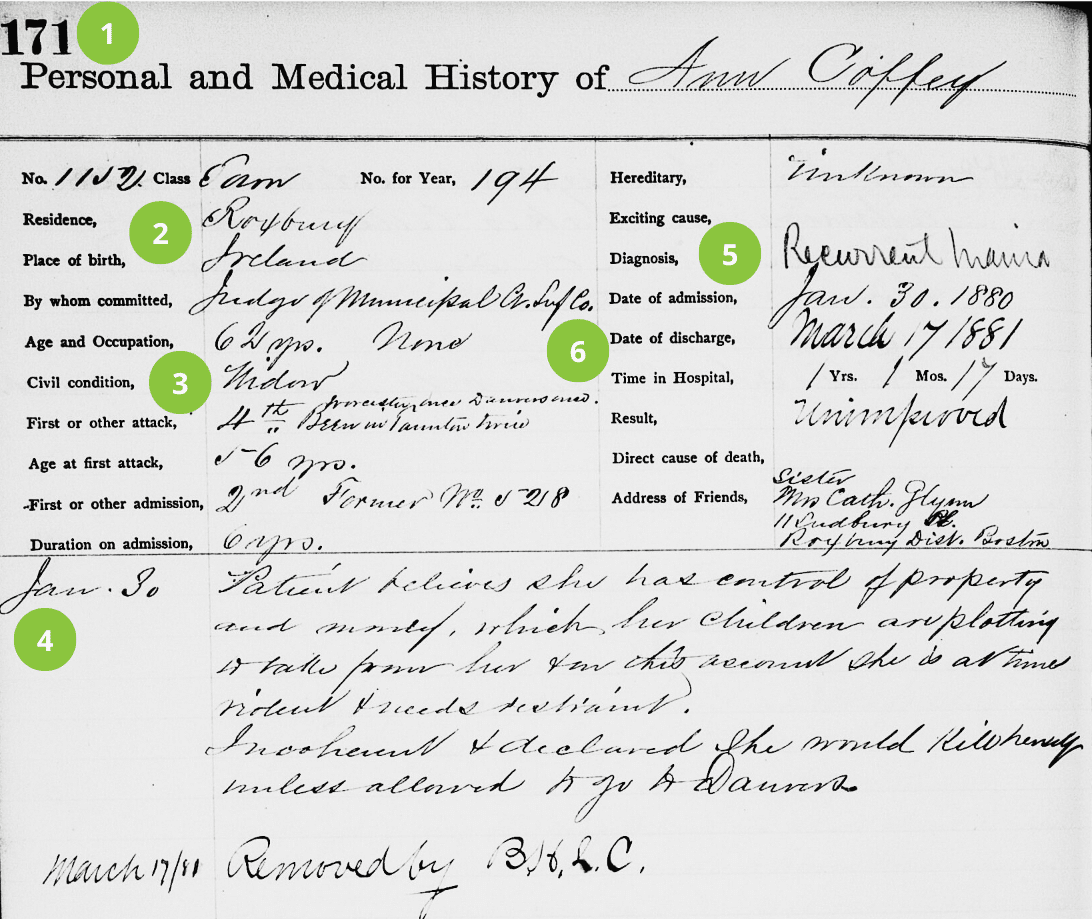 171 1
Personal and Medical History of Ann Coffey
No. 1152. Class No. for Year, 194
Residence, Roxbury
2
Place of birth, Ireland
By whom committed, Judge of Municipal Ct. Suf Co.
Age and Occupation, 62 yrs. None
Civil condition, 3 Widow
Worcester, once Danvers once.
First or other attack, 4th Been in Taunton twice
Age at first attack, 56 yrs.
First or other admission, 2nd Former No. 528
Duration on admission, 6 yrs.
Hereditary, Unknown
Exciting cause,
5
Diagnosis, Recurrent Mania
Date of admission, Jan. 30. 1880
6 Date of discharge, March 17 1881
Time in Hospital, 1 Yrs. 1 Mos. 17 Days.
Result, Unimproved
Direct cause of death,
Sister
Address of Friends, Mrs Cath. Glynn
11 Sudbury
Roxbury Dist. Boston
Jan. 30 Patient believes she has control of property
4 and money, which her children are plotting
to take from her & on this account she is at time
violent & needs restraint.
Incoherent & declared she would kill herself
unless allowed to go to Danvers
March 17/81 Removed by B.H.L.C.